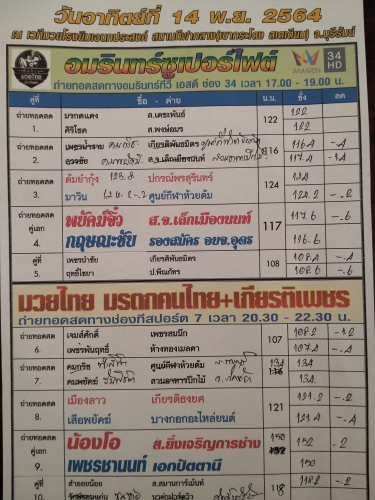 วันอาทิตย์ที่ 14 พ.ย. 2564
ณ เวทีมวยโรงยิมอเนกประสงค์ สนามกีฬากลาง(เขากระโดง สเตเดียม) จ.บุรีรัมย์
อมรินทร์ซูเปอร์ไฟต์
AMARIN 34 HD
ถ่ายทอดสดทางอมรินทร์ทีวี เอสดี ช่อง 34 เวลา 17.00 - 19.00 น.
คู่ที่ ชื่อ - ค่าย น.น. ชั่ง ลด
ถ่ายทอดสด มรกตแดง ส.เดชะพันธ์ 122 122
1. ศิริโชค ส.พงษ์อมร 122
ถ่ายทอดสด เพชรน้ำงาม เกียรติพันธมิตร 116 116.4 -.4
2. ส.จ.เล็กเมืองนนท์ 117.4 -1.4
ถ่ายทอดสด ต้มยำกุ้ง ปกรณ์พรสุรินทร์ 124 134
3. มาวิน ศูนย์กีฬาห้วยต้ม 124.2 -.2
ถ่ายทอดสด พยัคฆ์จิ๋ว ส.จ.เล็กเมืองนนท์ 117 117.6 -.6
คู่เอก
4. กฤษณะชับ รองสมัคร อบจ.อุดร 116.6
คู่ที่ เพชรนำชัย เกียรติพันธมิตร 108 108.4 -.4
5. ฤทธิ์โยธา ป.พีณภัทร 108.6 -.6
มวยไทย มรดกคนไทย+เกียรติเพชร
ถ่ายทอดสดทางช่องทีสปอร์ต 7 เวลา 20.30 - 22.30 น.
ถ่ายทอดสด เจมส์ศักดิ์ เพชรสมนึก 107 108.2 -1.2
6. เพชรพันฤทธิ์ ห้างทองเมลดา 107.4 -.4
ถ่ายทอดสด คมกริช ศูนย์กีฬาห้วยต้ม 134 134
7. คมพยัคฆ์ สวนอาหารปีกไม้ 134
ถ่ายทอดสด เมืองลาว เกียรติธงยศ 121 121.2 -.2
8. เสือพยัคฆ์ บางกอกอะไหล่ยนต์ 121.4 -.4
ถ่ายทอดสด น้องโอ ส.ยิ่งเจริญการช่าง 150 152 -2
คู่เอก
9. เพชรชานนท์ เอกปัตตานี 150
ถ่ายทอดสด ส.สมานการ์เม้นท์ 118 118.2 -.2